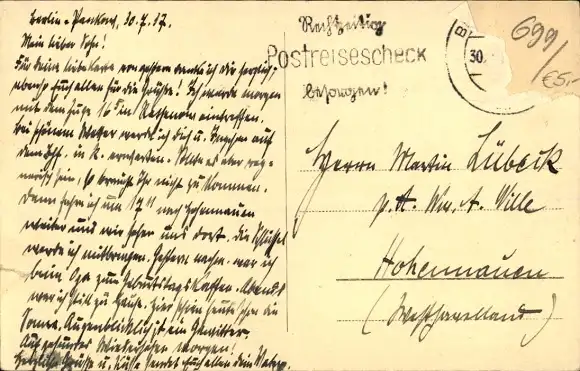 Berlin-Pankow, 30.7.37.
Mein lieber Sohn!
Für deine liebe Karte von gestern danke ich dir herzlich,
ebenso Euch allen für die Grüße! Ich werde morgen
mit dem Zuge 16 in Rathenow eintreffen.
Bei schönem Wetter werde ich dich u. auf
dem Bhf. in R. erwarten. Sollte es aber reg-
nerisch sein, so braucht Ihr nicht zu kommen.
Dann fahre ich um 17 nach Hohennauen
weiter und wir sehen uns dort. Die Schlüssel
werde ich mitbringen. Gestern nachm. war ich
beim Opa zum Geburtstagskaffee. Abends
war ich still zu Hause. Hier schien heute schon die
Sonne. Augenblicklich ist ein Gewitter.
Auf gesundes Wiedersehen morgen!
Herzliche Grüße u. Küsse sendet Euch allen dein Vater.
Rechtzeitig
Postreisescheck
besorgen!
B
30.
699
€5,-
Herrn Martin Lübeck
p. A. Ww. A. Wille
Hohennauen
(Westhavelland)